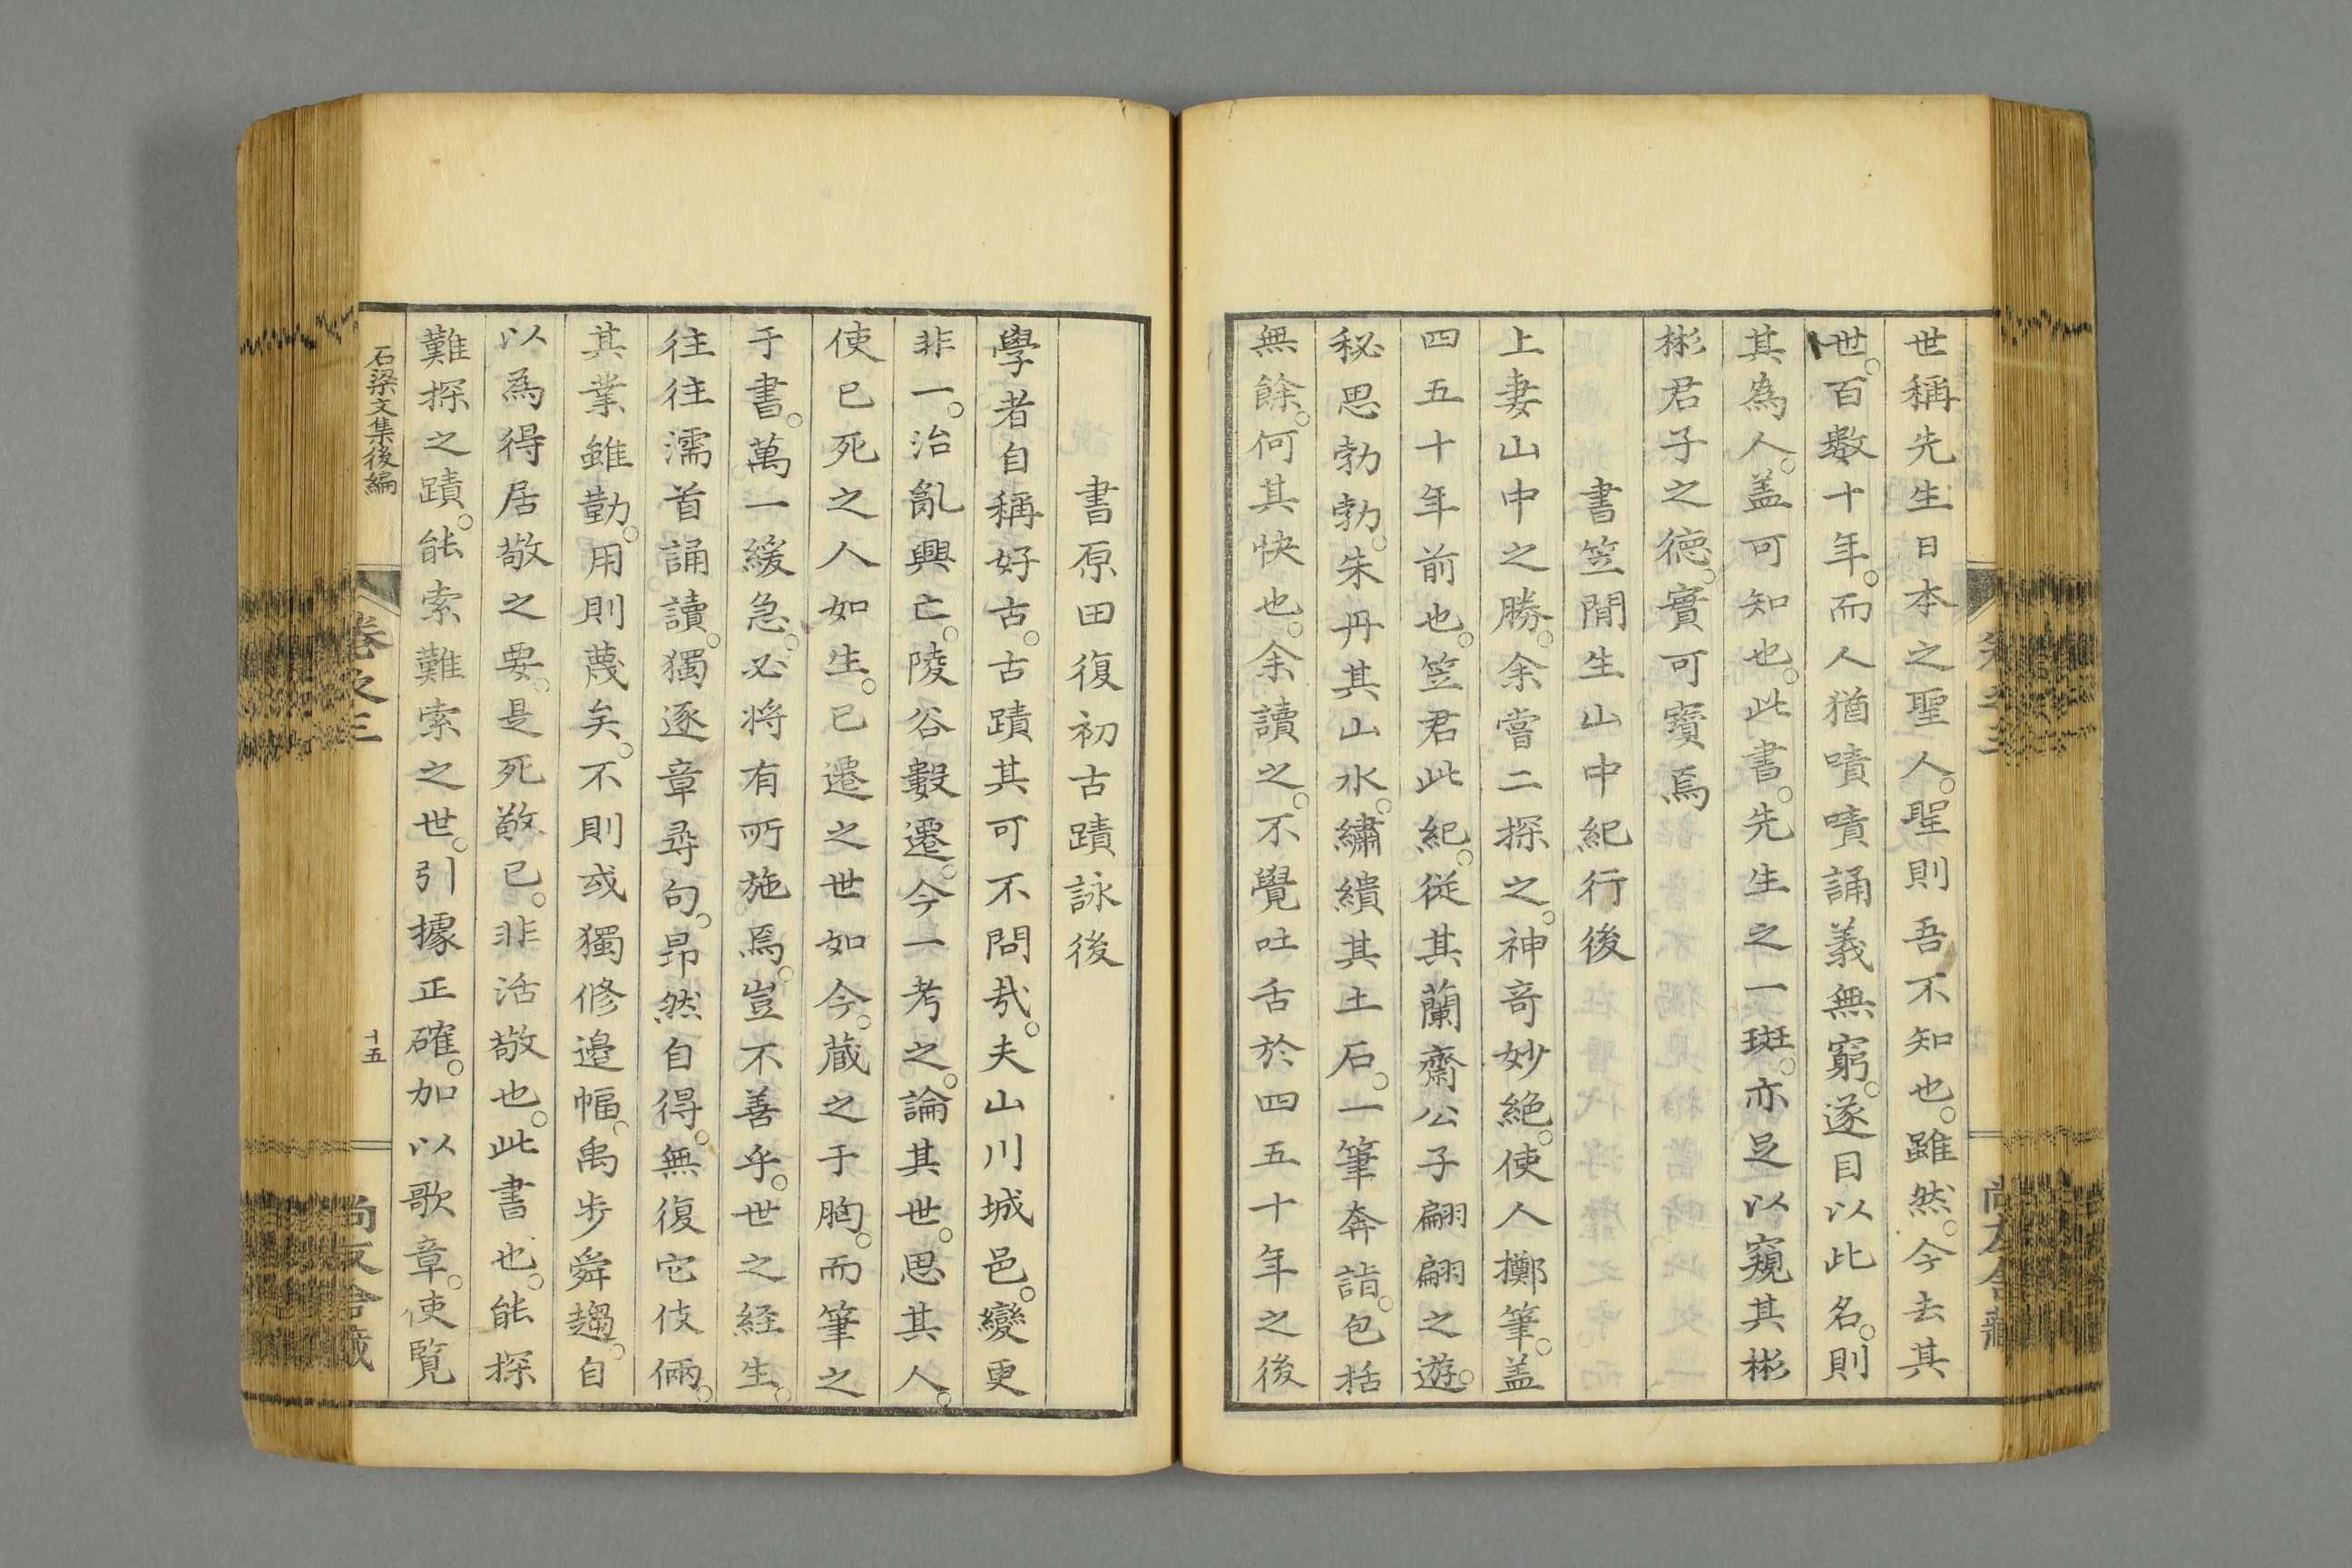 世稱先生日本之聖人。聖則吾不知也。雖然。今去其
世。百數十年。而人猶嘖嘖誦義無窮。遂目以此名。則
其為人。盖可知也。此書。先生之一斑。亦足以窺其彬
彬君子之德。實可寶焉
書笠間生山中紀行後
上妻山中之勝。余嘗二探之。神奇妙絶。使人擲筆。盖
四五十年前也。笠君此紀。從其蘭齋公子翩翩之遊。
秘思勃勃。朱丹其山水。繡繢其土石。一筆奔詣。包括
無餘。何其快也。余讀之。不覺吐舌於四五十年之後
書原田復初古蹟詠後
學者自稱好古。古蹟其可不問哉。夫山川城邑。變更
非一。治亂興亡。陵谷數遷。今一考之。論其世。思其人。
使已死之人如生。已遷之世如今。蔵之于胸。而筆之
于書。萬一緩急。必将有所施焉。豈不善乎。世之経生。
往往濡首誦讀。獨逐章尋句。昂然自得。無復它伎倆。
其業雖勤。用則蔑矣。不則或獨修邉幅。禹步舜趨。自
以為得居敬之要。是死敬已。非活敬也。此書也。能探
難探之蹟。能索難索之世。引據正確。加以歌章。使覧
石梁文集後編
卷之三
十五
尚友舍藏